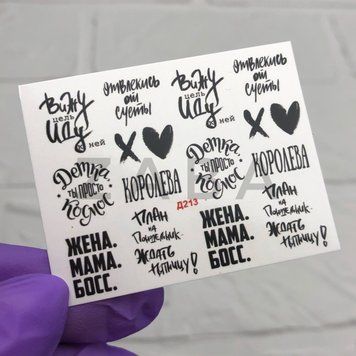 Вижу
цель
иду
к ней
Отвлекись
от
суеты
Вижу
цель
иду
к ней
Отвлекись
от
суеты
Детка,
ты просто
Космос
КОРОЛЕВА
Детка,
ты просто
Космос
КОРОЛЕВА
Д213
ЖЕНА.
МАМА.
БОСС.
План
на
Понедельник:
Ждать
пятницу!
ЖЕНА.
МАМА.
БОСС.
План
на
Понедельник:
Ждать
пятницу!
ZABA